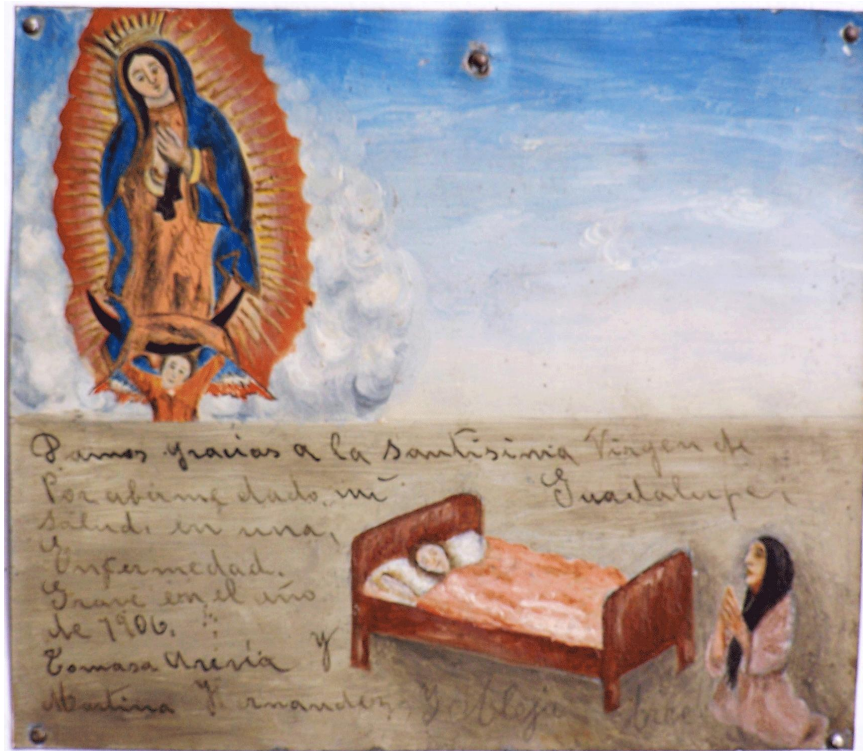 Damos gracias a la Santisima Virgen de
Guadalupe,
Por aberme dado, mi
Salud. en una,
Enfermedad.
Grave en el año
de 1906.
Tomasa y
Martina Hernandez